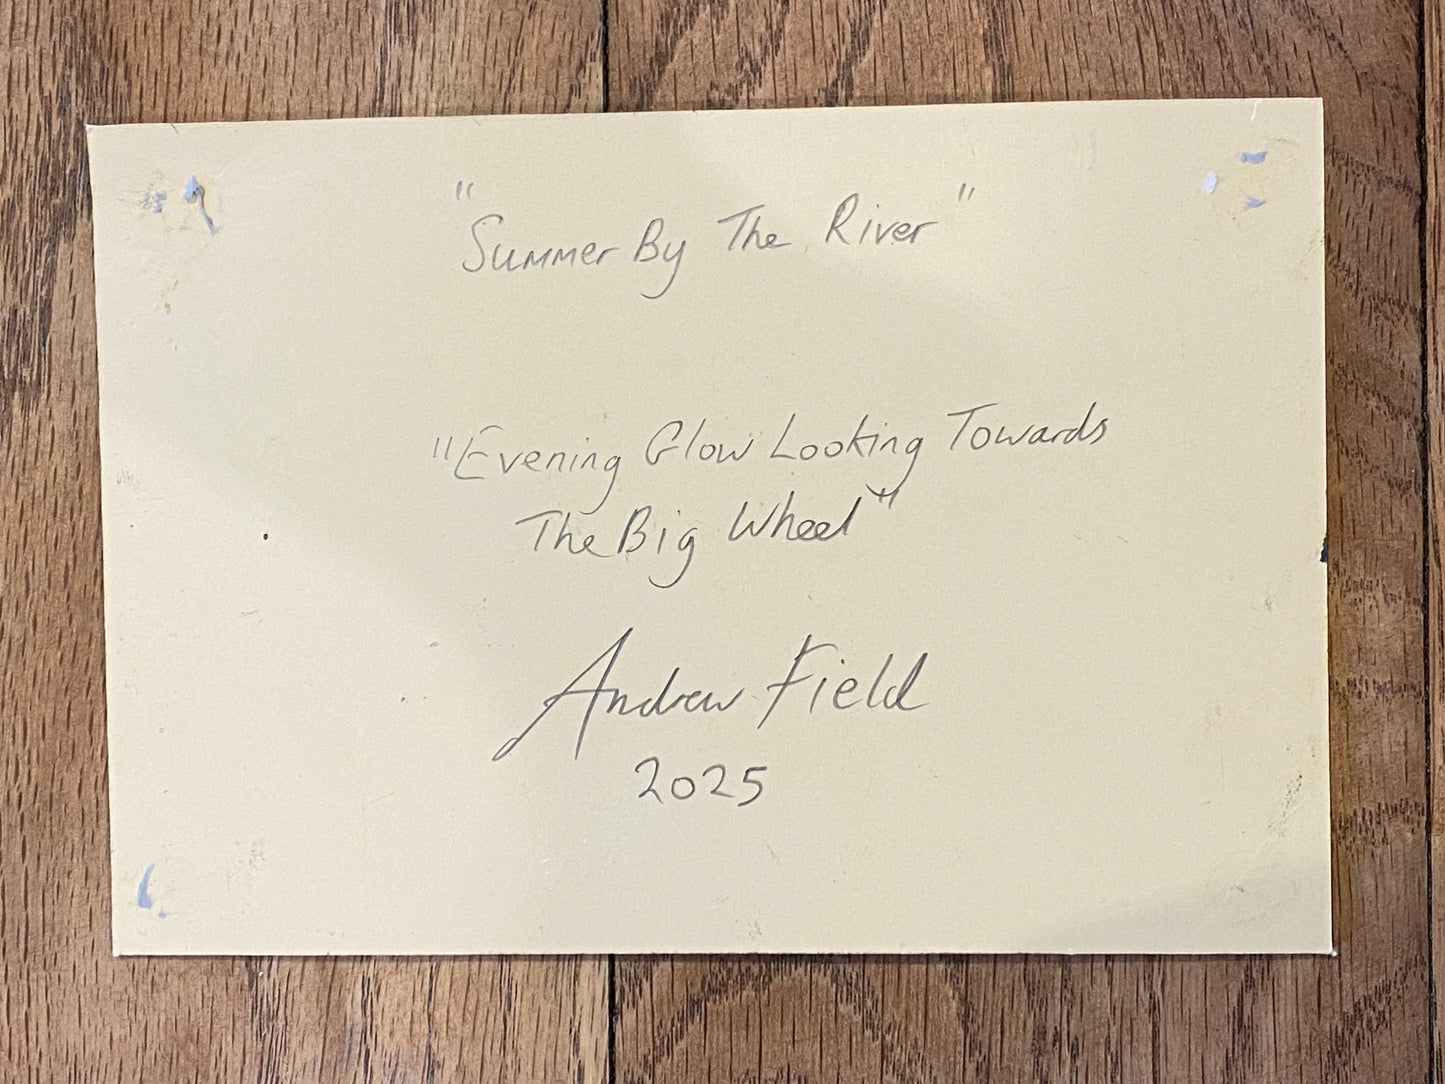 "Summer By The River"
"Evening Glow Looking Towards
The Big Wheel"
Andrew Field
2025